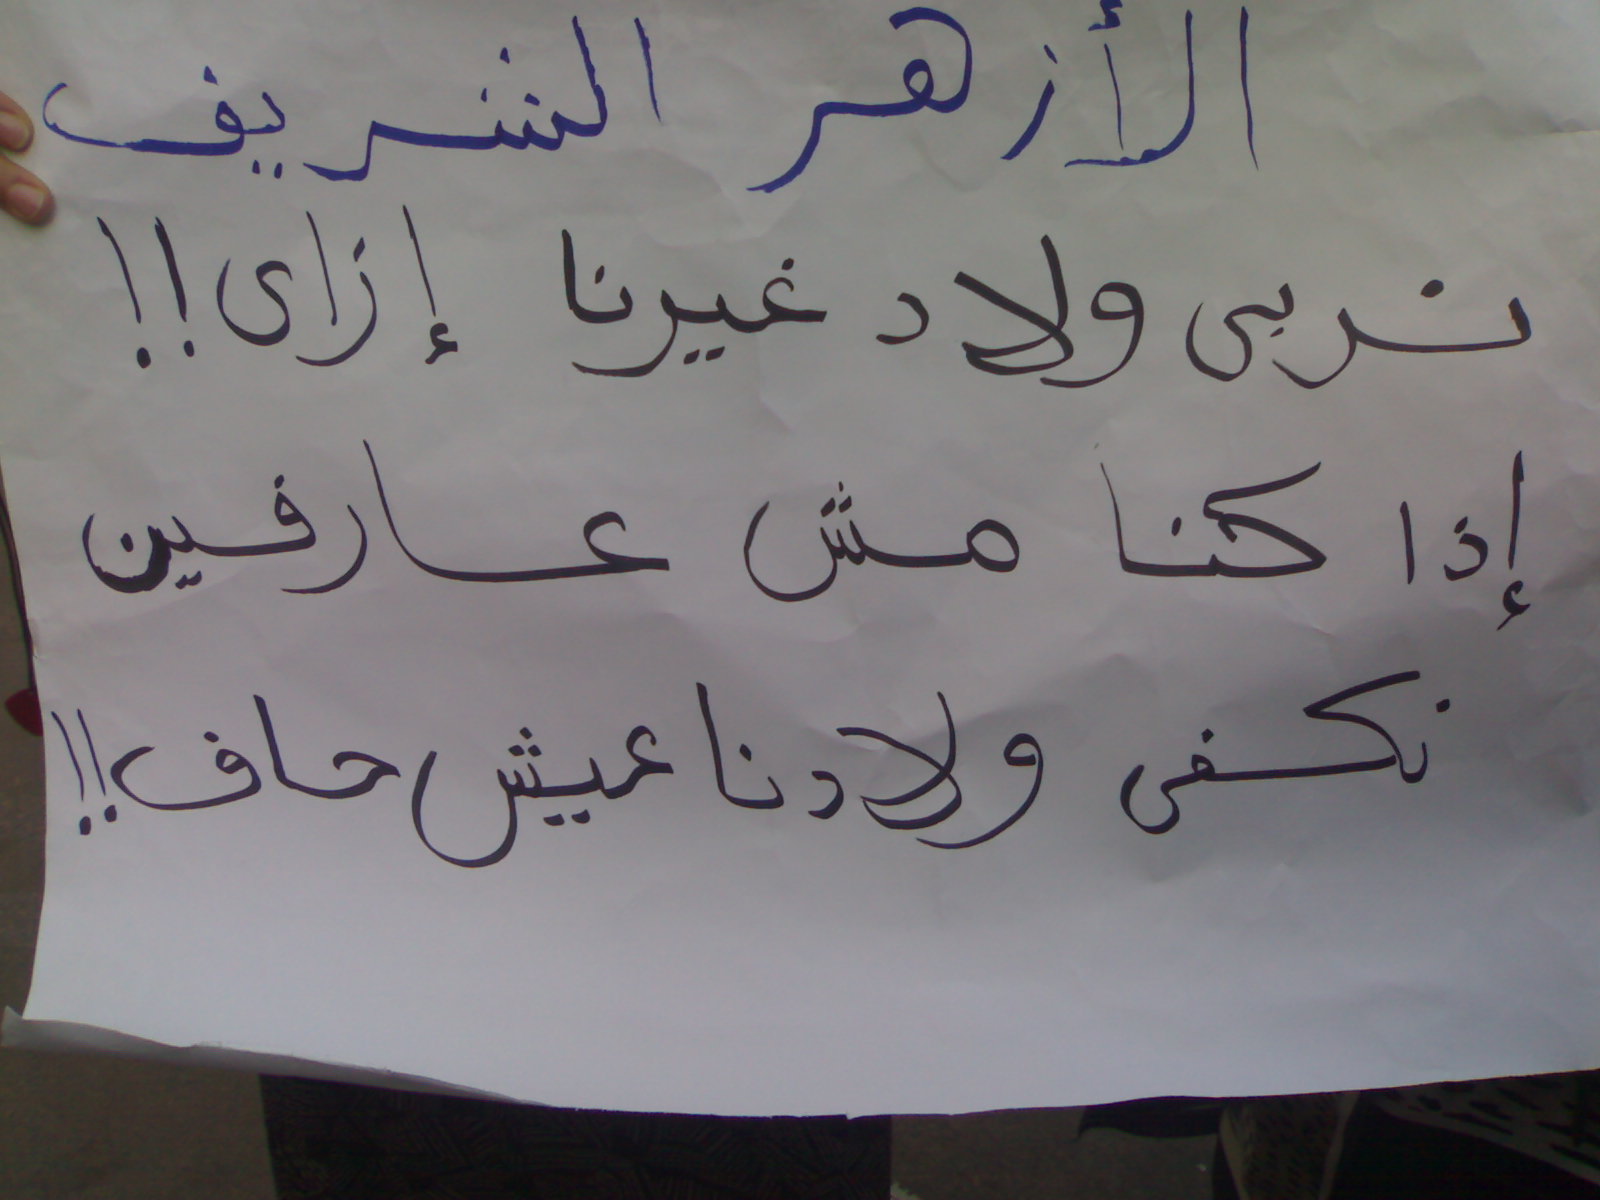 الأزهر الشريف
نربى ولاد غيرنا إزاى!!
إذا كنا مش عارفين
نكفى ولادنا عيش حاف!!